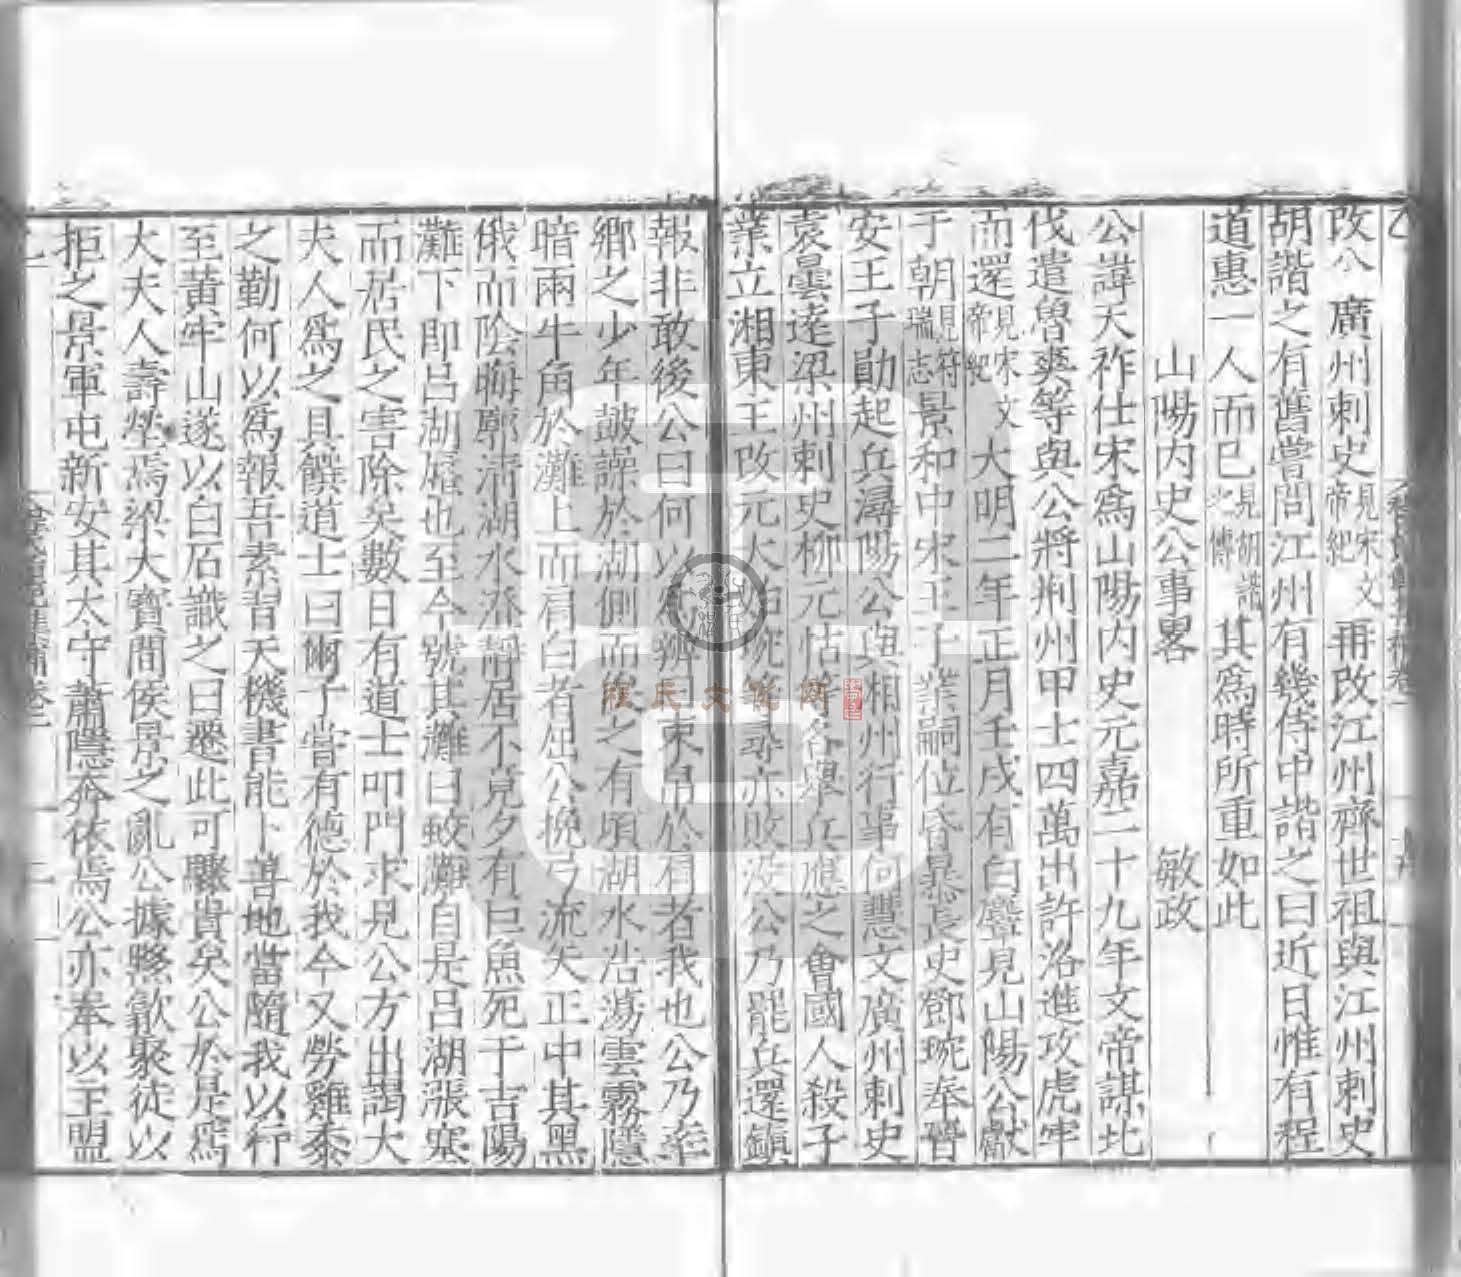 改公 廣州刺史見宋文帝紀 再改江州齊世祖與江州刺史
胡諧之有舊嘗問江州有幾侍中諧之曰近日惟有程
道惠一人而已見胡諧之傳 其爲時所重如此
山陽内史公事畧 敏政
公諱天祚仕宋爲山陽内史元嘉二十九年文帝謀北
伐遣魯爽等與公將荆州甲士四萬出許洛進攻虎牢
而還見宋文帝紀 大明二年正月壬戌有白麞見山陽公獻
于朝見符瑞志 景和中宋王子業嗣位昏暴長史鄧琬奉晉
安王子勛起兵潯陽公與湘州行事何慧文廣州刺史
袁曇遠梁州刺史柳元怙等各舉兵應之會國人殺子
業立湘東王改元大始琬 尋亦敗没公乃罷兵還鎮
報非敢後公曰何以 辨 束帛於肩者我也公乃率
鄉之少年鼓譟於湖側而 之有頃湖水浩蕩雲霧隱
暗兩牛角於灘上而肩白者屈公挽弓流矢正中其黑
俄而陰晦廓清湖水添靜居不見夕有巨魚死于吉陽
灘下即吕湖蜃也至今號其灘曰蛟灘自是吕湖漲塞
而居民之害除矣數日有道士叩門求見公方出謁大
夫人爲之具饌道士曰爾子嘗有德於我今又勞雞黍
之勤何以爲報吾素習天機書能卜善地當隨我以行
至黃牢山遂以白石識之曰遷此可驟貴矣公於是爲
大夫人壽塋焉梁大寶間侯景之亂公據黟歙聚徒以
拒之景軍屯新安其太守蕭隱奔依焉公亦奉以主盟